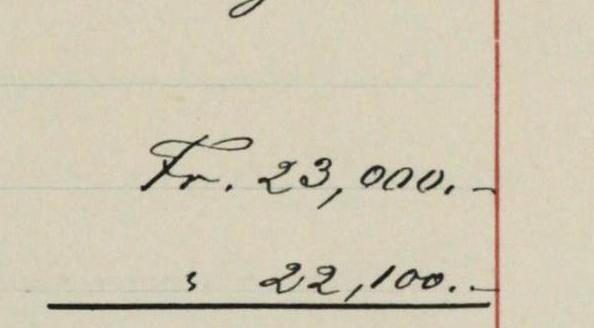 Fr. 23,000.-
" 22,100.-